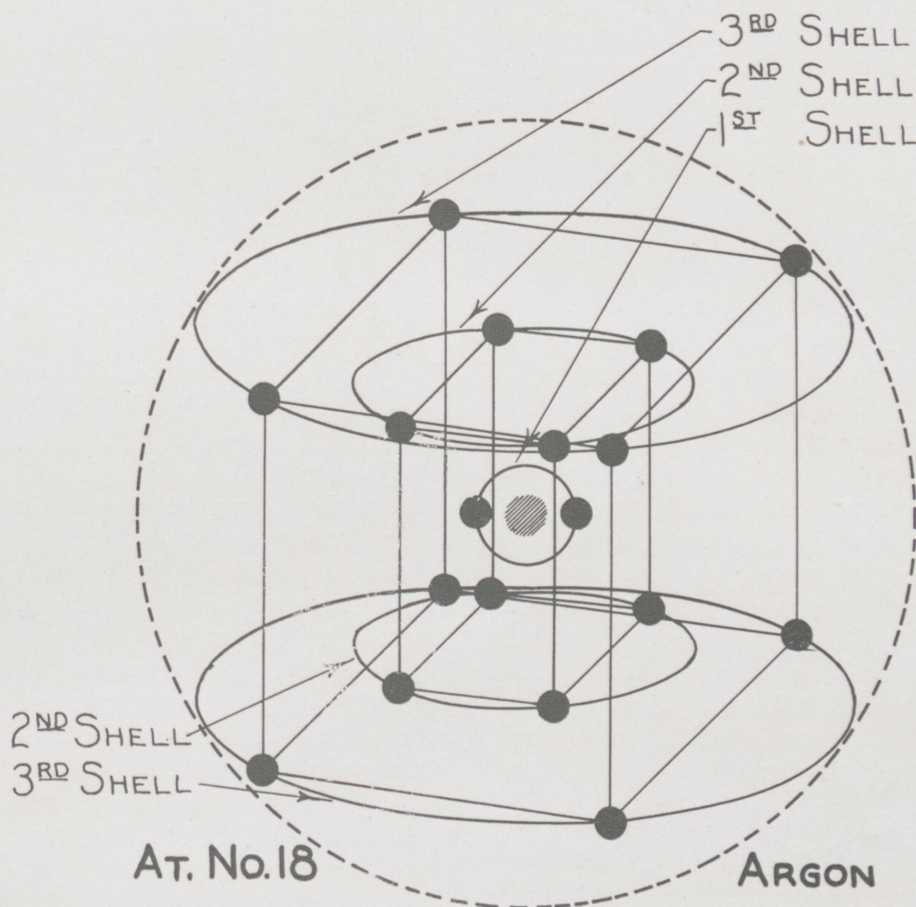 3RD SHELL
2ND SHELL
1ST SHELL
2ND SHELL
3RD SHELL
AT. No. 18
ARGON